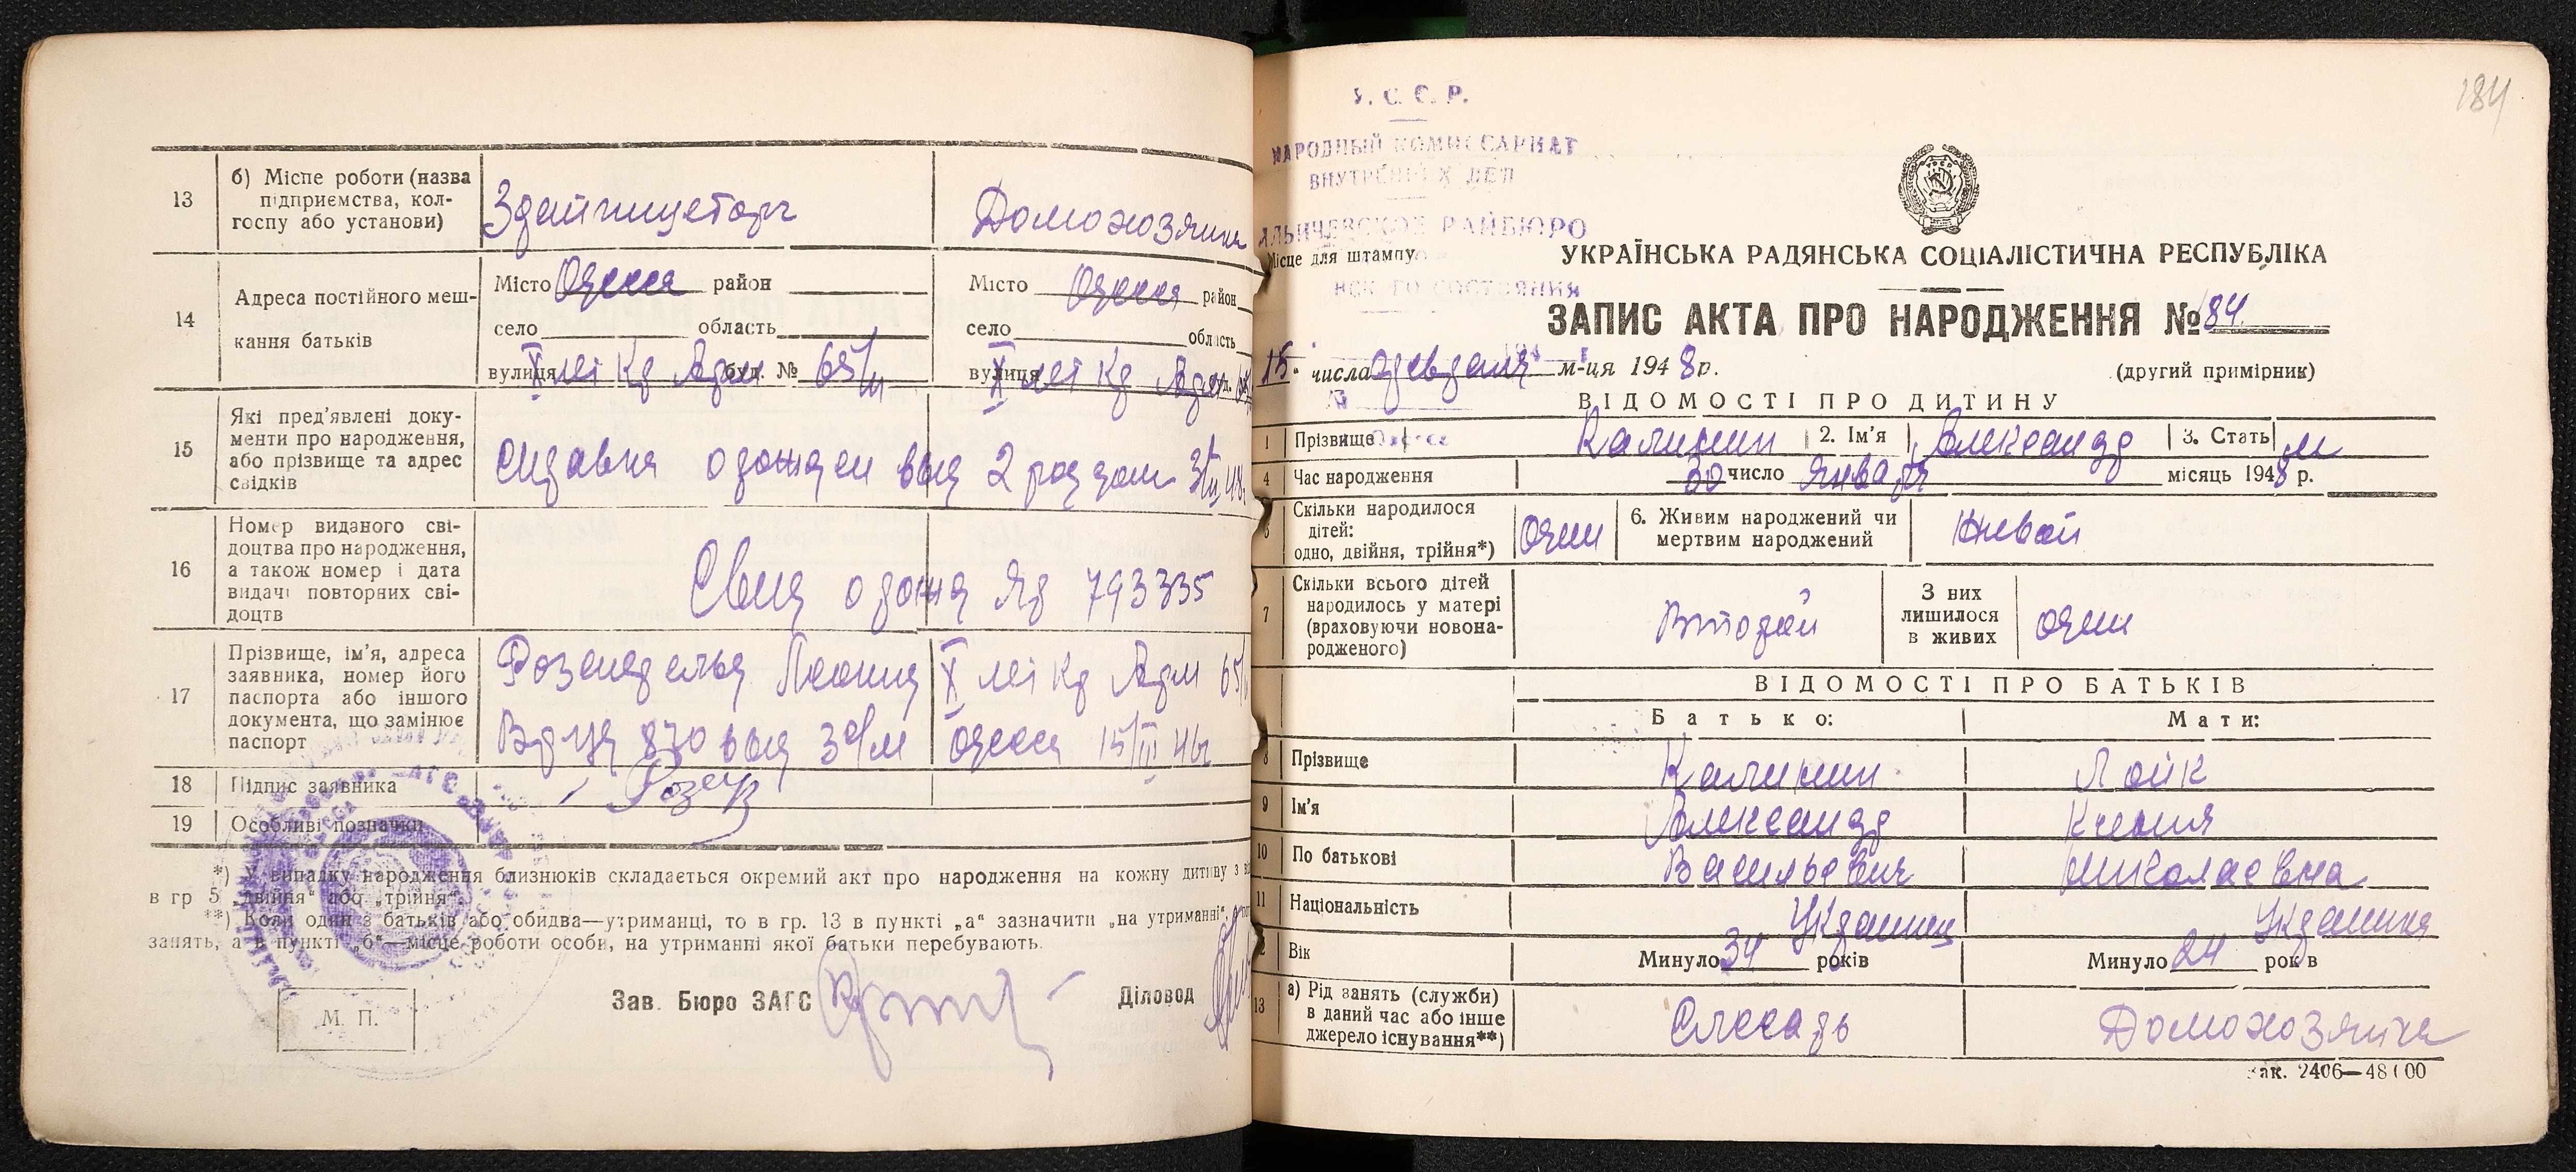 13
б) Місце роботи (назва
підприємства, кол-
госпу або установи)
Домохозяйка
14
Адреса постійного меш-
кання батьків
Місто Одесса район
село область
вулиця X лет Кр Арм буд. № 65/
Місто Одесса район
село область
вулиця X лет Кр Арм буд.
15
Які пред'явлені доку-
менти про народження,
або прізвище та адрес
свідків
справка о рожден выд 2 род дом
16
Номер виданого сві-
доцтва про народження,
а також номер і дата
видачі повторних сві-
доцтв
Свид о рожд ЯД 793335
17
Прізвище, ім'я, адреса
заявника, номер його
паспорта або іншого
документа, що замінює
паспорт
X лет Кр Арм 65/
выд 3 о/м Одесса 15/III 46г
18
Підпис заявника
19
Особливі позначки
*) У випадку народження близнюків складається окремий акт про народження на кожну дитину з
в гр 5 „двійня" або „трійня".
**) Коли один з батьків або обидва—утриманці, то в гр. 13 в пункті „а" зазначити „на утриманні",
занять, а в пункті „б"—місце роботи особи, на утриманні якої батьки перебувають.
Зав. Бюро ЗАГС
Діловод
М. П.
184
У. С. С. Р.
НАРОДНЫЙ КОМИССАРИАТ
ВНУТРЕННИХ ДЕЛ
ИЛЬИЧЕВСКОЕ РАЙБЮРО
Місце для штампу
СОСТОЯНИЯ
УКРАЇНСЬКА РАДЯНСЬКА СОЦІАЛІСТИЧНА РЕСПУБЛІКА
ЗАПИС АКТА ПРО НАРОДЖЕННЯ № 84
15 " числа февраля м-ця 1948 р.
(другий примірник)
ВІДОМОСТІ ПРО ДИТИНУ
1 Прізвище Калинин 2. Ім'я Александр 3. Стать м
4 Час народження 30 число января місяць 1948 р.
Скільки народилося
дітей:
одно, двійня, трійня*)
один
6. Живим народжений чи
мертвим народжений
живой
7
Скільки всього дітей
народилось у матері
(враховуючи новона-
родженого)
Второй
З них
лишилося
в живих
один
ВІДОМОСТІ ПРО БАТЬКІВ
Батько: Мати:
8 Прізвище Калинин Лойк
9 Ім'я Александр Ксения
10 По батькові Васильевич Николаевна
11 Національність Украинец Украинка
Вік Минуло 34 років Минуло 24 років
13
а) Рід занять (служби)
в даний час або інше
джерело існування**)
Слесарь
Домохозяйка
Зак. 2406—48100